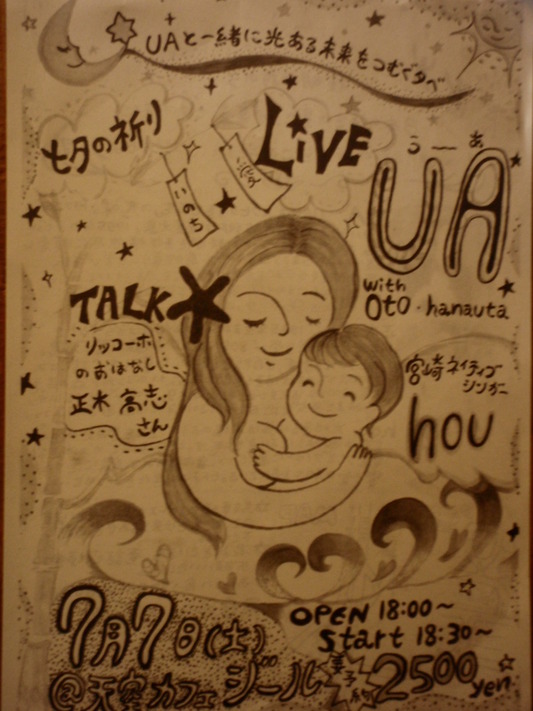 UAと一緒に光ある未来をつむぐ夕べ
七夕の祈り
LiVE
うーあ
UA
いのち
with
Oto・hanauta
TALK
リッコーホ
のおはなし
正木 高志
さん
宮崎ネイティブ
シンガー
hou
7月7日(土)
OPEN 18:00~
Start 18:30~
@天空カフェジール
要予約
2500
yen